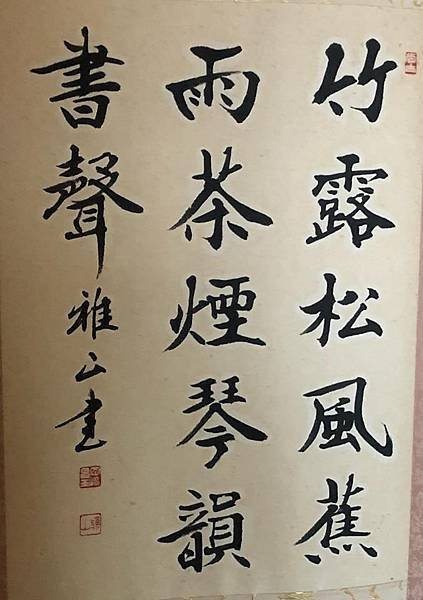 竹露松風蕉
雨茶煙琴韻
書聲
雅山書